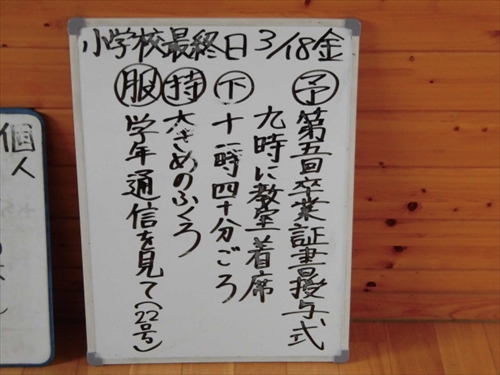 小学校最終日 3/18金
予 第五回卒業証書授与式
九時に教室着席
下 十一時四十分ごろ
持 大きめのふくろ
服 学年通信を見て(22号)
個人